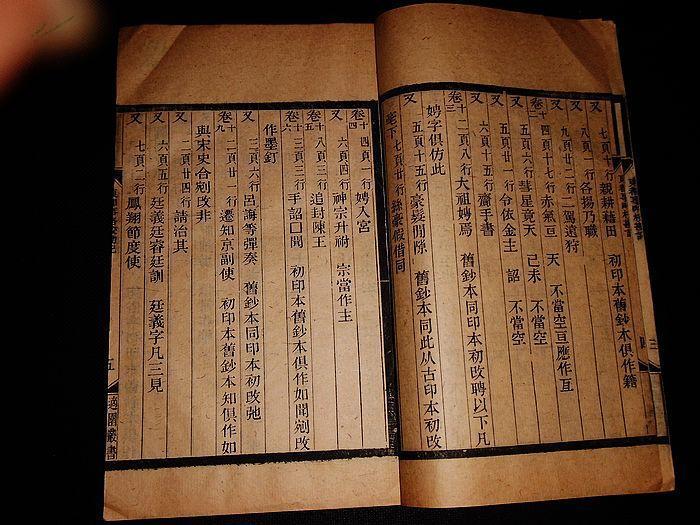 又 七頁十行親耕藉田 初印本舊鈔本俱作籍
又 八頁一行各揚乃職
又 九頁廿二行二駕道狩
又 四頁十七行赤氣亘天 不當空亘應作互
卷十二 五頁六行彗星竟天 己未 不當空
又 五頁十五行令依金主 詔 不當空
又 六頁十五行齋手書
卷十三 二頁八行大祖娉焉 舊鈔本同印本初改聘以下凡
娉字俱仿此
又 五頁十五行豪髮閒隙 舊鈔本同此从古印本初改
毫下 七頁廿行絲豪假借同
卷十四 四頁一行娉入宮
又 六頁四行神宗升祔 宗當作主
卷十五 八頁三行追封陳王
卷十六 三頁三行手詔囗閒 初印本舊鈔本俱作如聞剜改
作墨釘
又 三頁六行呂誨等彈奏 舊鈔本同印本初改劾
卷十九 二頁廿一行遷知京副使 初印本舊鈔本知俱作如
與宋史合剜改非
又 二頁廿四行請治其
又 六頁五行廷義廷睿廷訓 廷義字凡三見
又 七頁二行鳳翔節度使
五
適園叢書